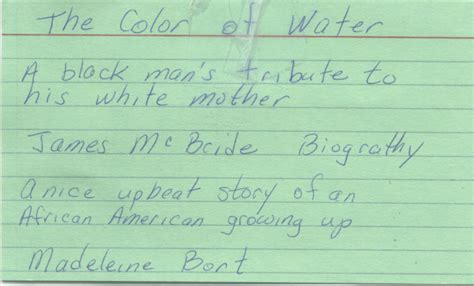 The Color of Water
A black man's tribute to
his white mother
James McBride Biograthy
A nice upbeat story of an
African American growing up
Madeleine Bort